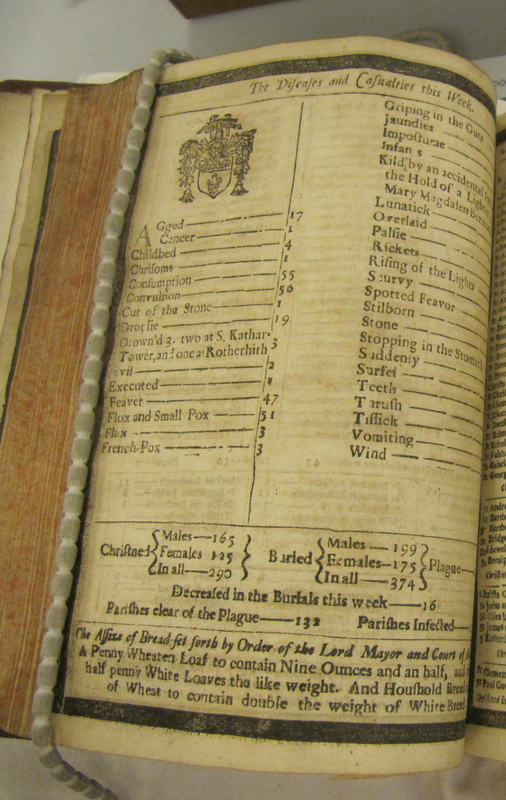 The Diseases and Casualties this Week.
AGged 17
Cancer 1
Childbed 4
Chrisoms 1
Consumption 55
Convulsion 56
Cut of the Stone 1
Dropsie 19
Drown'd 3. two at S. Kathar-
Tower, and one at Rotherhith 3
Evil 2
Executed 1
Feaver 47
Flox and Small Pox 51
Flux 3
French-Pox 3
Griping in the Guts
Jaundies
Imposthume
Infants
Kild, by an accidental
the Hold of a Lighter
Mary Magdalen
Lunatick
Overlaid
Palsie
Rickets
Rising of the Lights
Scurvy
Spotted Feavor
Stilborn
Stone
Stopping in the Stomach
Suddenly
Surfet
Teeth
Thrush
Tissick
Vomiting
Wind
Christned Males—165 Females 125 In all—290 Buried Males—199 Females—175 In all—374 Plague
Decreased in the Burials this week—16
Parishes clear of the Plague—132 Parishes Infected
The Assize of Bread set forth by Order of the Lord Mayor and Court of
A Penny Wheaten Loaf to contain Nine Ounces and an half, and
half penny White Loaves the like weight. And Houshold Bread
of Wheat to contain double the weight of White Bread